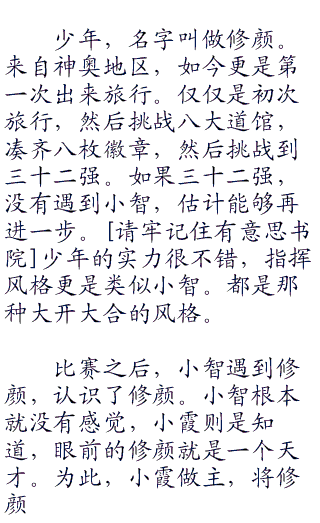 少年，名字叫做修颜。
来自神奥地区，如今更是第
一次出来旅行。仅仅是初次
旅行，然后挑战八大道馆，
凑齐八枚徽章，然后挑战到
三十二强。如果三十二强，
没有遇到小智，估计能够再
进一步。[请牢记住有意思书
院]少年的实力很不错，指挥
风格更是类似小智。都是那
种大开大合的风格。
比赛之后，小智遇到修
颜，认识了修颜。小智根本
就没有感觉，小霞则是知
道，眼前的修颜就是一个天
才。为此，小霞做主，将修
颜